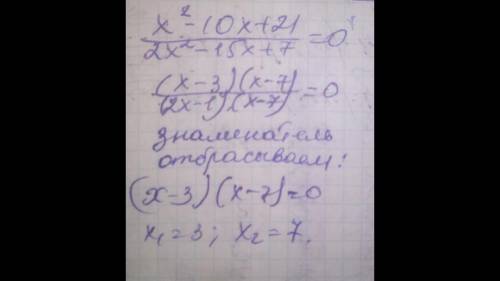 x² - 10x + 21
2x² - 15x + 7 = 0
(x - 3)(x - 7)
(2x - 1)(x - 7) = 0
знаменатель
отбрасываем:
(x - 3)(x - 7) = 0
x₁ = 3; x₂ = 7.